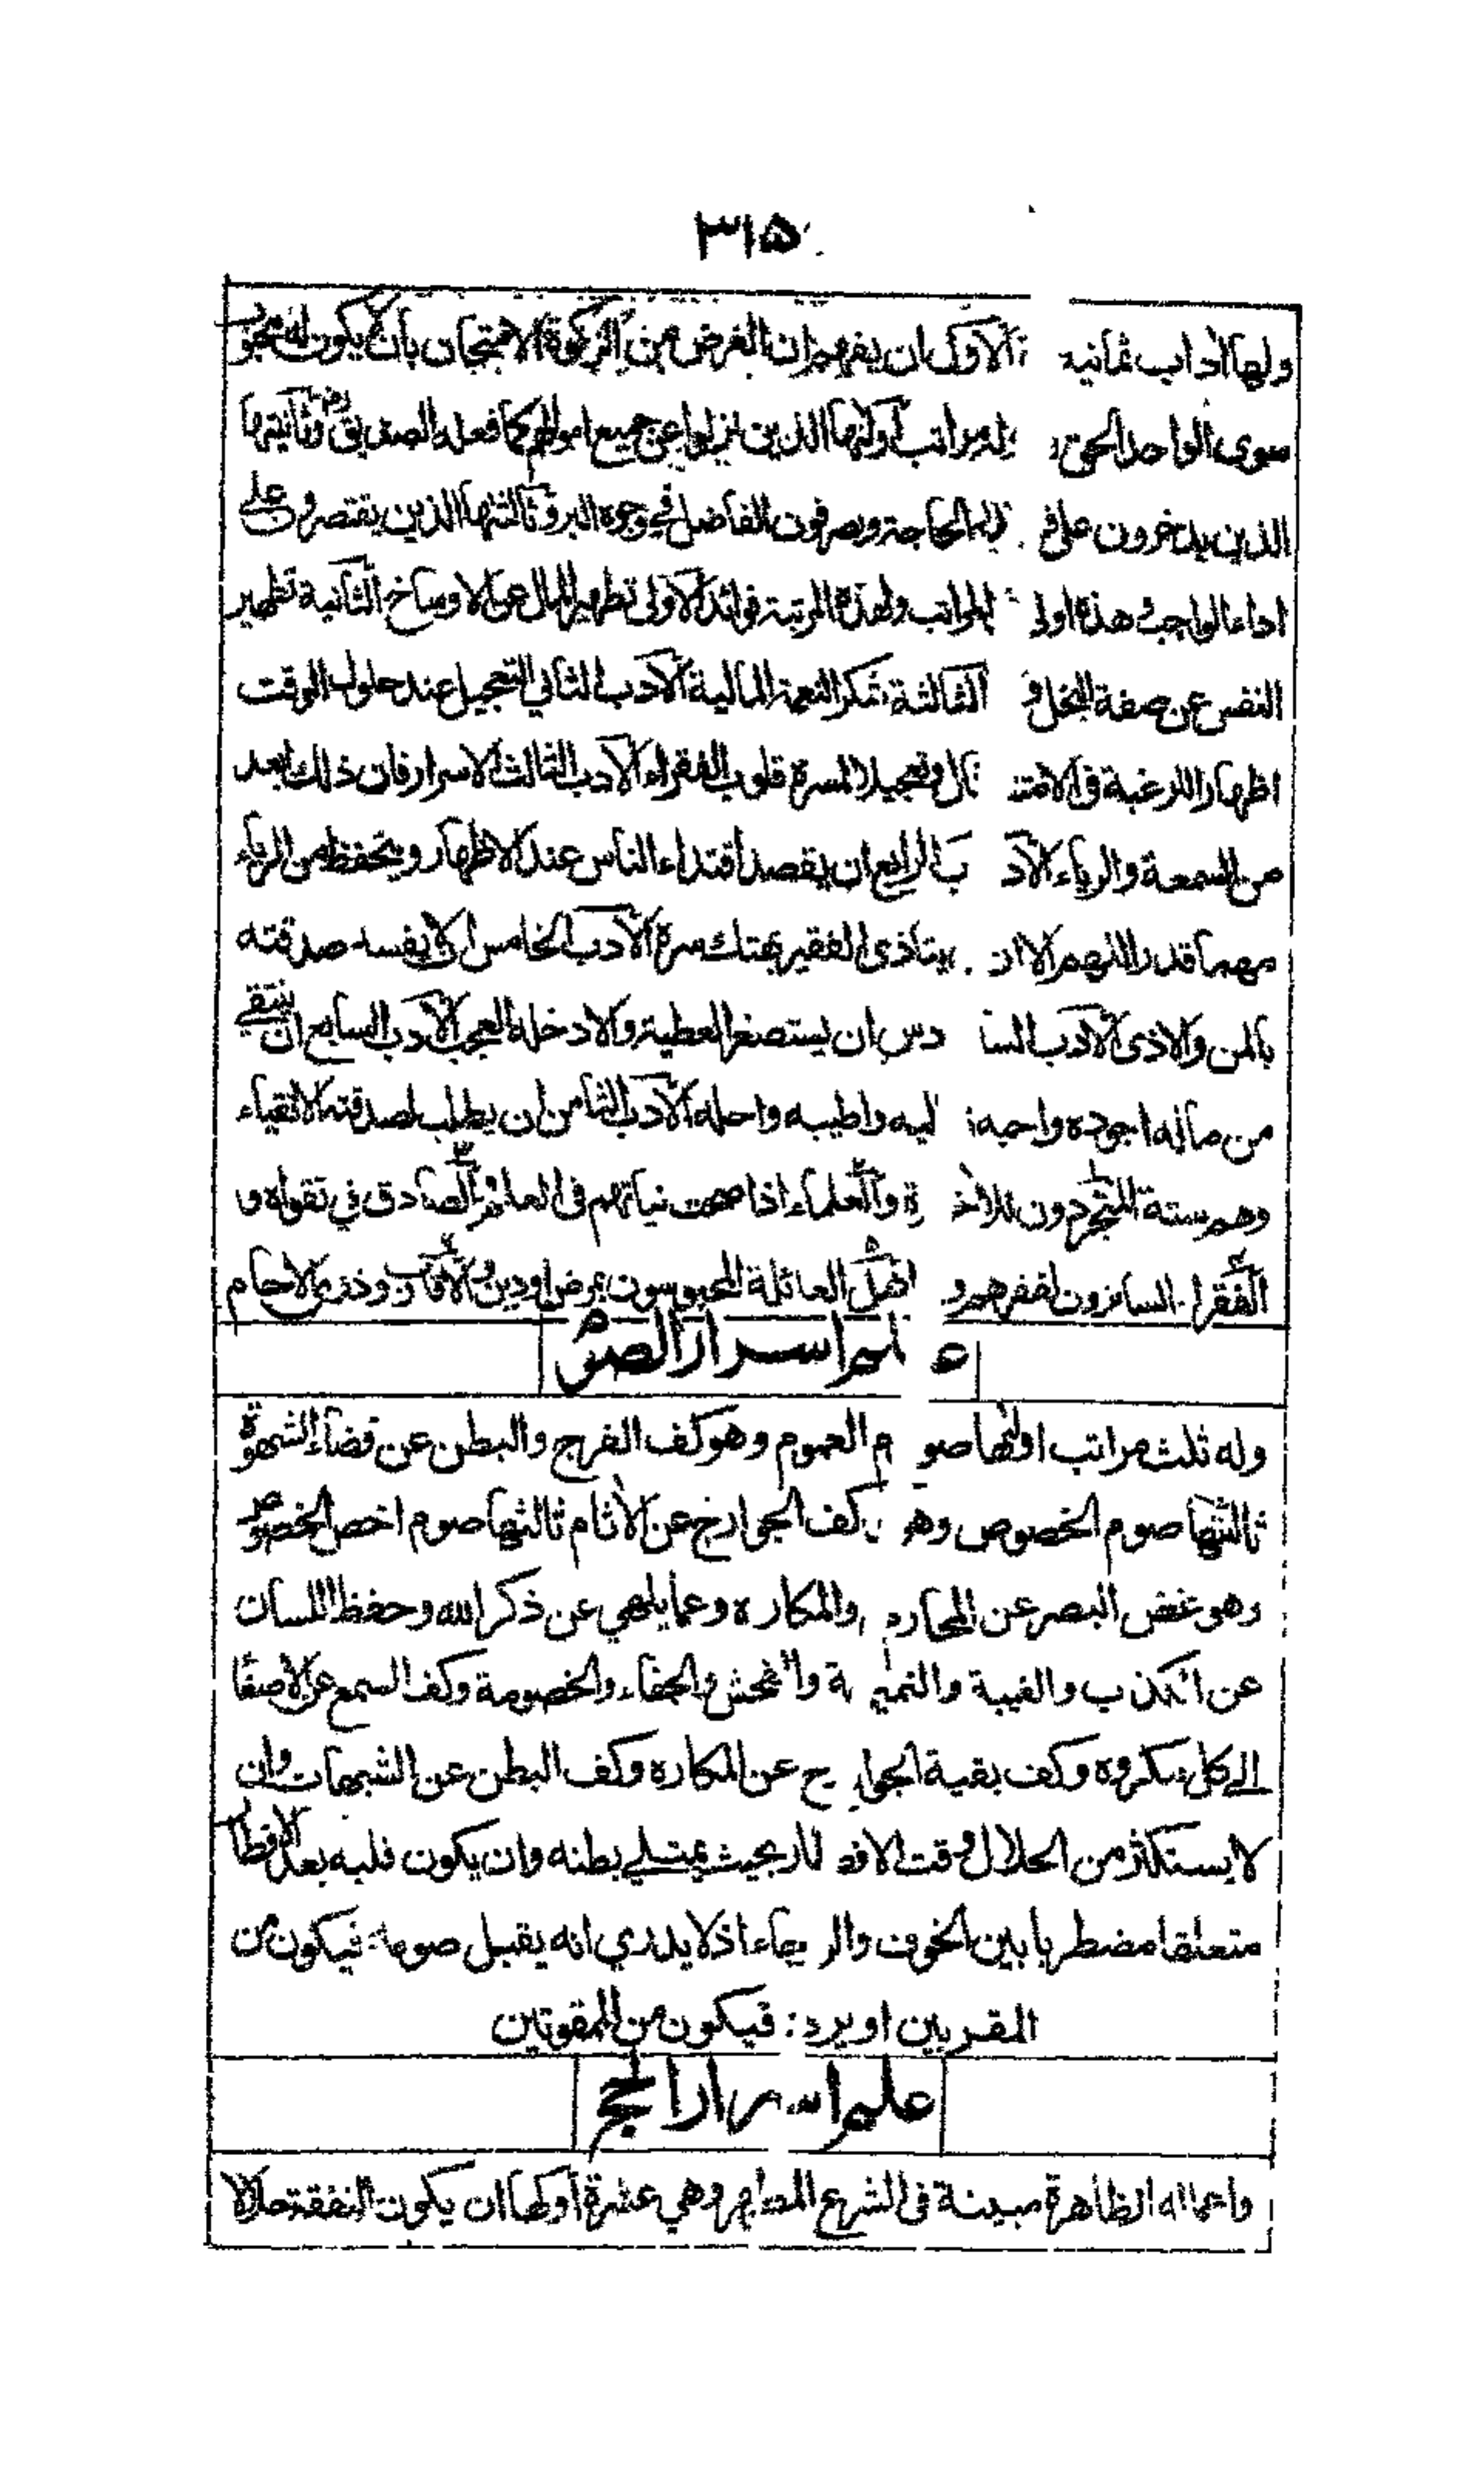 ۳۱۵
ولها اداب ثمانية الاول ان يفهم ان الغرض من الزكوة الامتحان بان لا يكون له محبوب
سوى الواحد الحق وله مراتب اولها الذين نزلوا عن جميع اموالهم كما فعله الصديق رض وثانيتها
الذين يدخرون على قدر الحاجة ويصرفون الفاضل في وجوه البر وثالثتها الذين يقتصرون على
اداء الواجب هذه اولى المراتب ولهذه المرتبة فوائد الاولى تطهير المال عن الاوساخ الثانية تطهير
النفس عن صفة البخل و الثالثة شكر النعمة المالية الادب الثاني التعجيل عند حلول الوقت
اظهارا للرغبة في الامتثال وتعجيلا لمسرة قلوب الفقراء الادب الثالث الاسرار فان ذلك ابعد
من السمعة والرياء الادب الرابع ان يقصد اقتداء الناس عند الاظهار ويتحفظ من الرياء
مهما قدر اللهم الا ان يتاذى الفقير بهتك سره الادب الخامس ان لا يفسد صدقته
بالمن والاذى الادب السادس ان يستصغر العطية والا دخله العجب الادب السابع ان ينتقي
من ماله اجوده واحبه اليه واطيبه واحله الادب الثامن ان يطلب لصدقته الاتقياء
وهم ستة المتجردون للاخرة والعلماء اذا صحت نياتهم في العلم والصادق في تقواه و
الفقراء الساترون لفقرهم و اهل العائلة المحبوسون بمرض او دين والاقارب وذوي الارحام
علم اسرار الصوم
وله ثلث مراتب اولها صوم العموم وهو كف الفرج والبطن عن قضاء الشهوة
ثالثتها صوم الخصوص وهو كف الجوارح عن الاثام ثالثتها صوم اخص الخصوص
وهو غض البصر عن المحارم والمكاره وعما يلهي عن ذكر الله وحفظ اللسان
عن الكذب والغيبة والنميمة والفحش والجفاء والخصومة وكف السمع عن الاصغا
الى كل مكروه وكف بقية الجوارح عن المكاره وكف البطن عن الشبهات وان
لا يستكثر من الحلال وقت الافطار بحيث يمتلي بطنه وان يكون قلبه بعد الافطار
متعلقا مضطربا بين الخوف والرجاء اذ لا يدري انه يقبل صومه فيكون من
المقربين او يرد فيكون من الممقوتين
علم اسرار الحج
واعماله الظاهرة مبينة في الشرع المطهر وهي عشرة اولها ان يكون النفقة حلالا